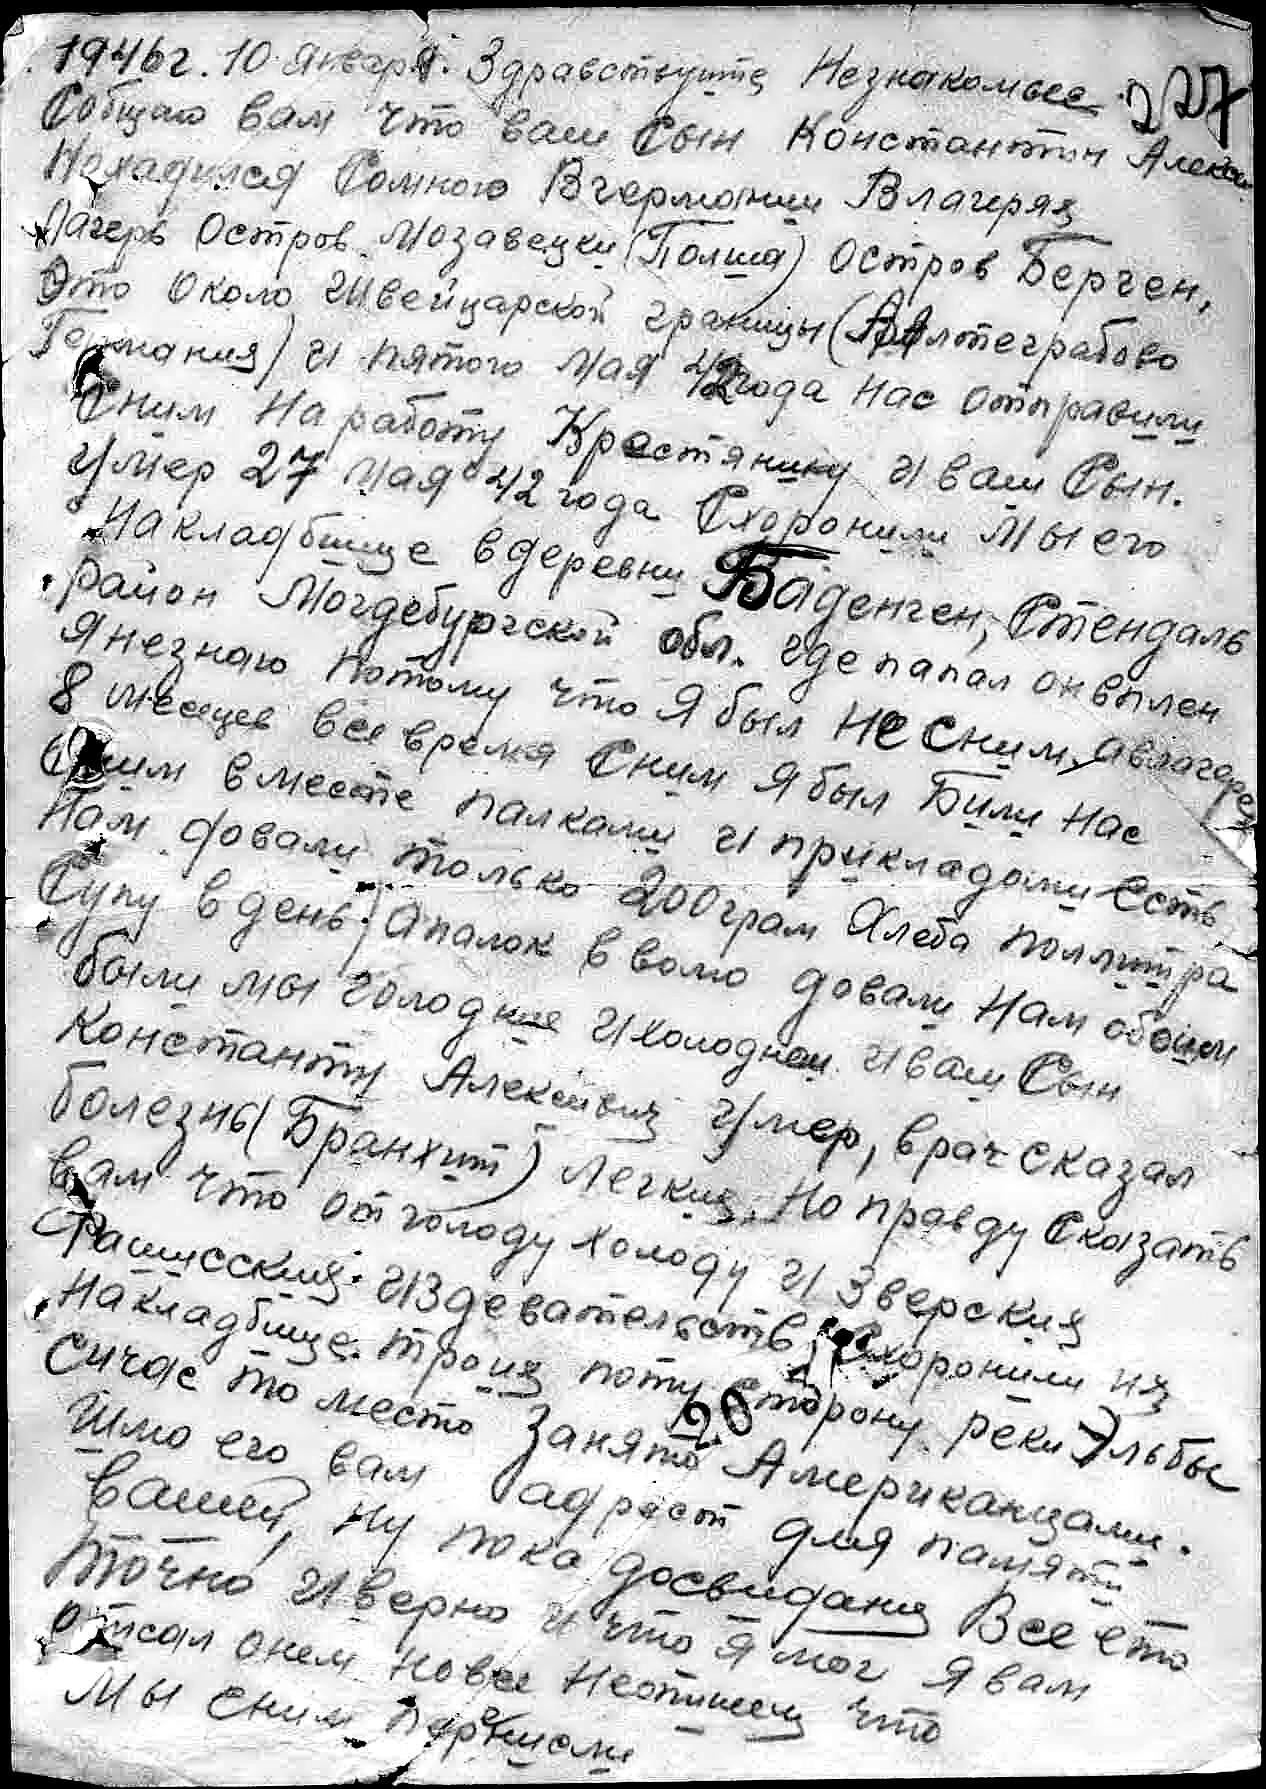 1946г. 10 Января. Здравствуите Незнакомые
227
Собщаю вам что ваш Сын Константин Алекси
Находился Сомною Вгермонии Влагерях
Лагерь Остров Мозавецки (Полша) остров Берген,
Это Около Швейцарской границы (Алтеграбово
Германия) и пятого Мая 42 года нас отправили
Сним на работу Крестянину и ваш Сын.
умер 27 мая 42 года Схоронили Мы его
На кладбище в деревни Баденген, Стендаль
район Могдебургской обл. где папал онвплен
Я незнаю потому что Я был не сним, авлагере
8 месецев все время Сним Я был Били нас
Сним вместе палками и прикладоми Есть
Нам довали только 200 грам Хлеба поллитра
Супу в день, Апалок в волю довали Нам обоим
были мы голодные и холодные и ваш Сын
Константи Алексеивич умер, врач сказал
болезнь (Бранхит) Легких. Но правду Сказать
вам что от голоду холоду и Зверских
Фашисских издевательств Схоронили их
На кладбище троих поту сторону реки Эльбы
Сичас то место Занято Американцами.
20
Шлю его вам адрест для памяти
вашей, ну пока досвидания Все ето
точно и верно и что я мог я вам
описал онем новсе Неопишеш что
Мы сним перенисли